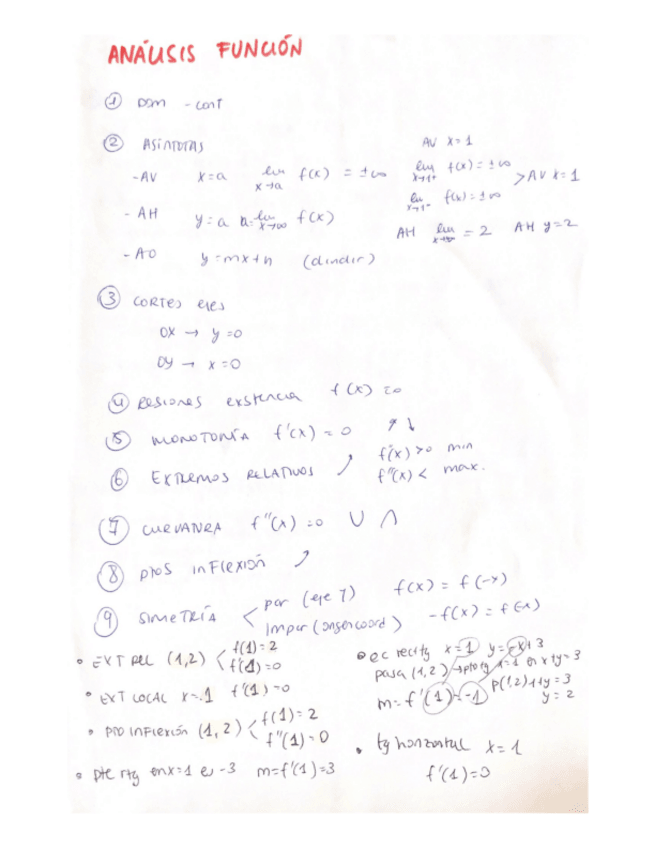 ANÁLISIS FUNCIÓN
① DOM - CONT
② ASÍNTOTAS
-AV x=a lim x→a f(x) = ±∞
- AH y=a a=lim x→∞ f(x)
- AO y=mx+n (dividir)
AV x=1
lim x→1+ f(x) = ±∞
lim x→1- f(x) = ±∞ > AV x=1
AH lim x→±∞ = 2 AH y=2
③ CORTES ejes
OX → y=0
OY → x=0
④ Regiones existencia f(x)=0
⑤ MONOTONÍA f'(x) = 0 ↗ ↓
⑥ EXTREMOS RELATIVOS f''(x)>0 min
f''(x)< max.
⑦ CURVATURA f''(x)=0 ∪ ∩
⑧ ptos inflexión
⑨ SIMETRÍA < par (eje Y) f(x) = f(-x)
Impar (origen coord) -f(x) = f(-x)
• EXT REL (1,2) < f(1)=2
f'(1)=0
• EXT LOCAL x=1 f'(1)=0
• PTO INFLEXIÓN (1,2) < f(1)=2
f''(1)=0
• pte rtg en x=1 es -3 m=f'(1)=3
• ec rect tg x=1 y=-x+3
pasa (1,2) → pto tg x=1 en x+y=3
m=f'(1)=-1 P(1,2) 1+y=3
y=2
• tg horizontal x=1
f'(1)=0